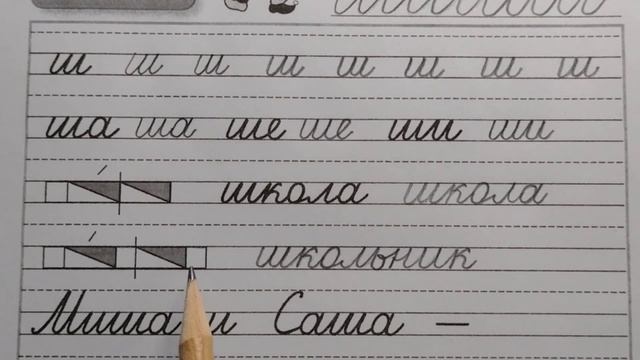 ш ш ш ш ш ш ш ш
ша ша ше ше ши ши
школа школа
школьник
Миша и Саша —